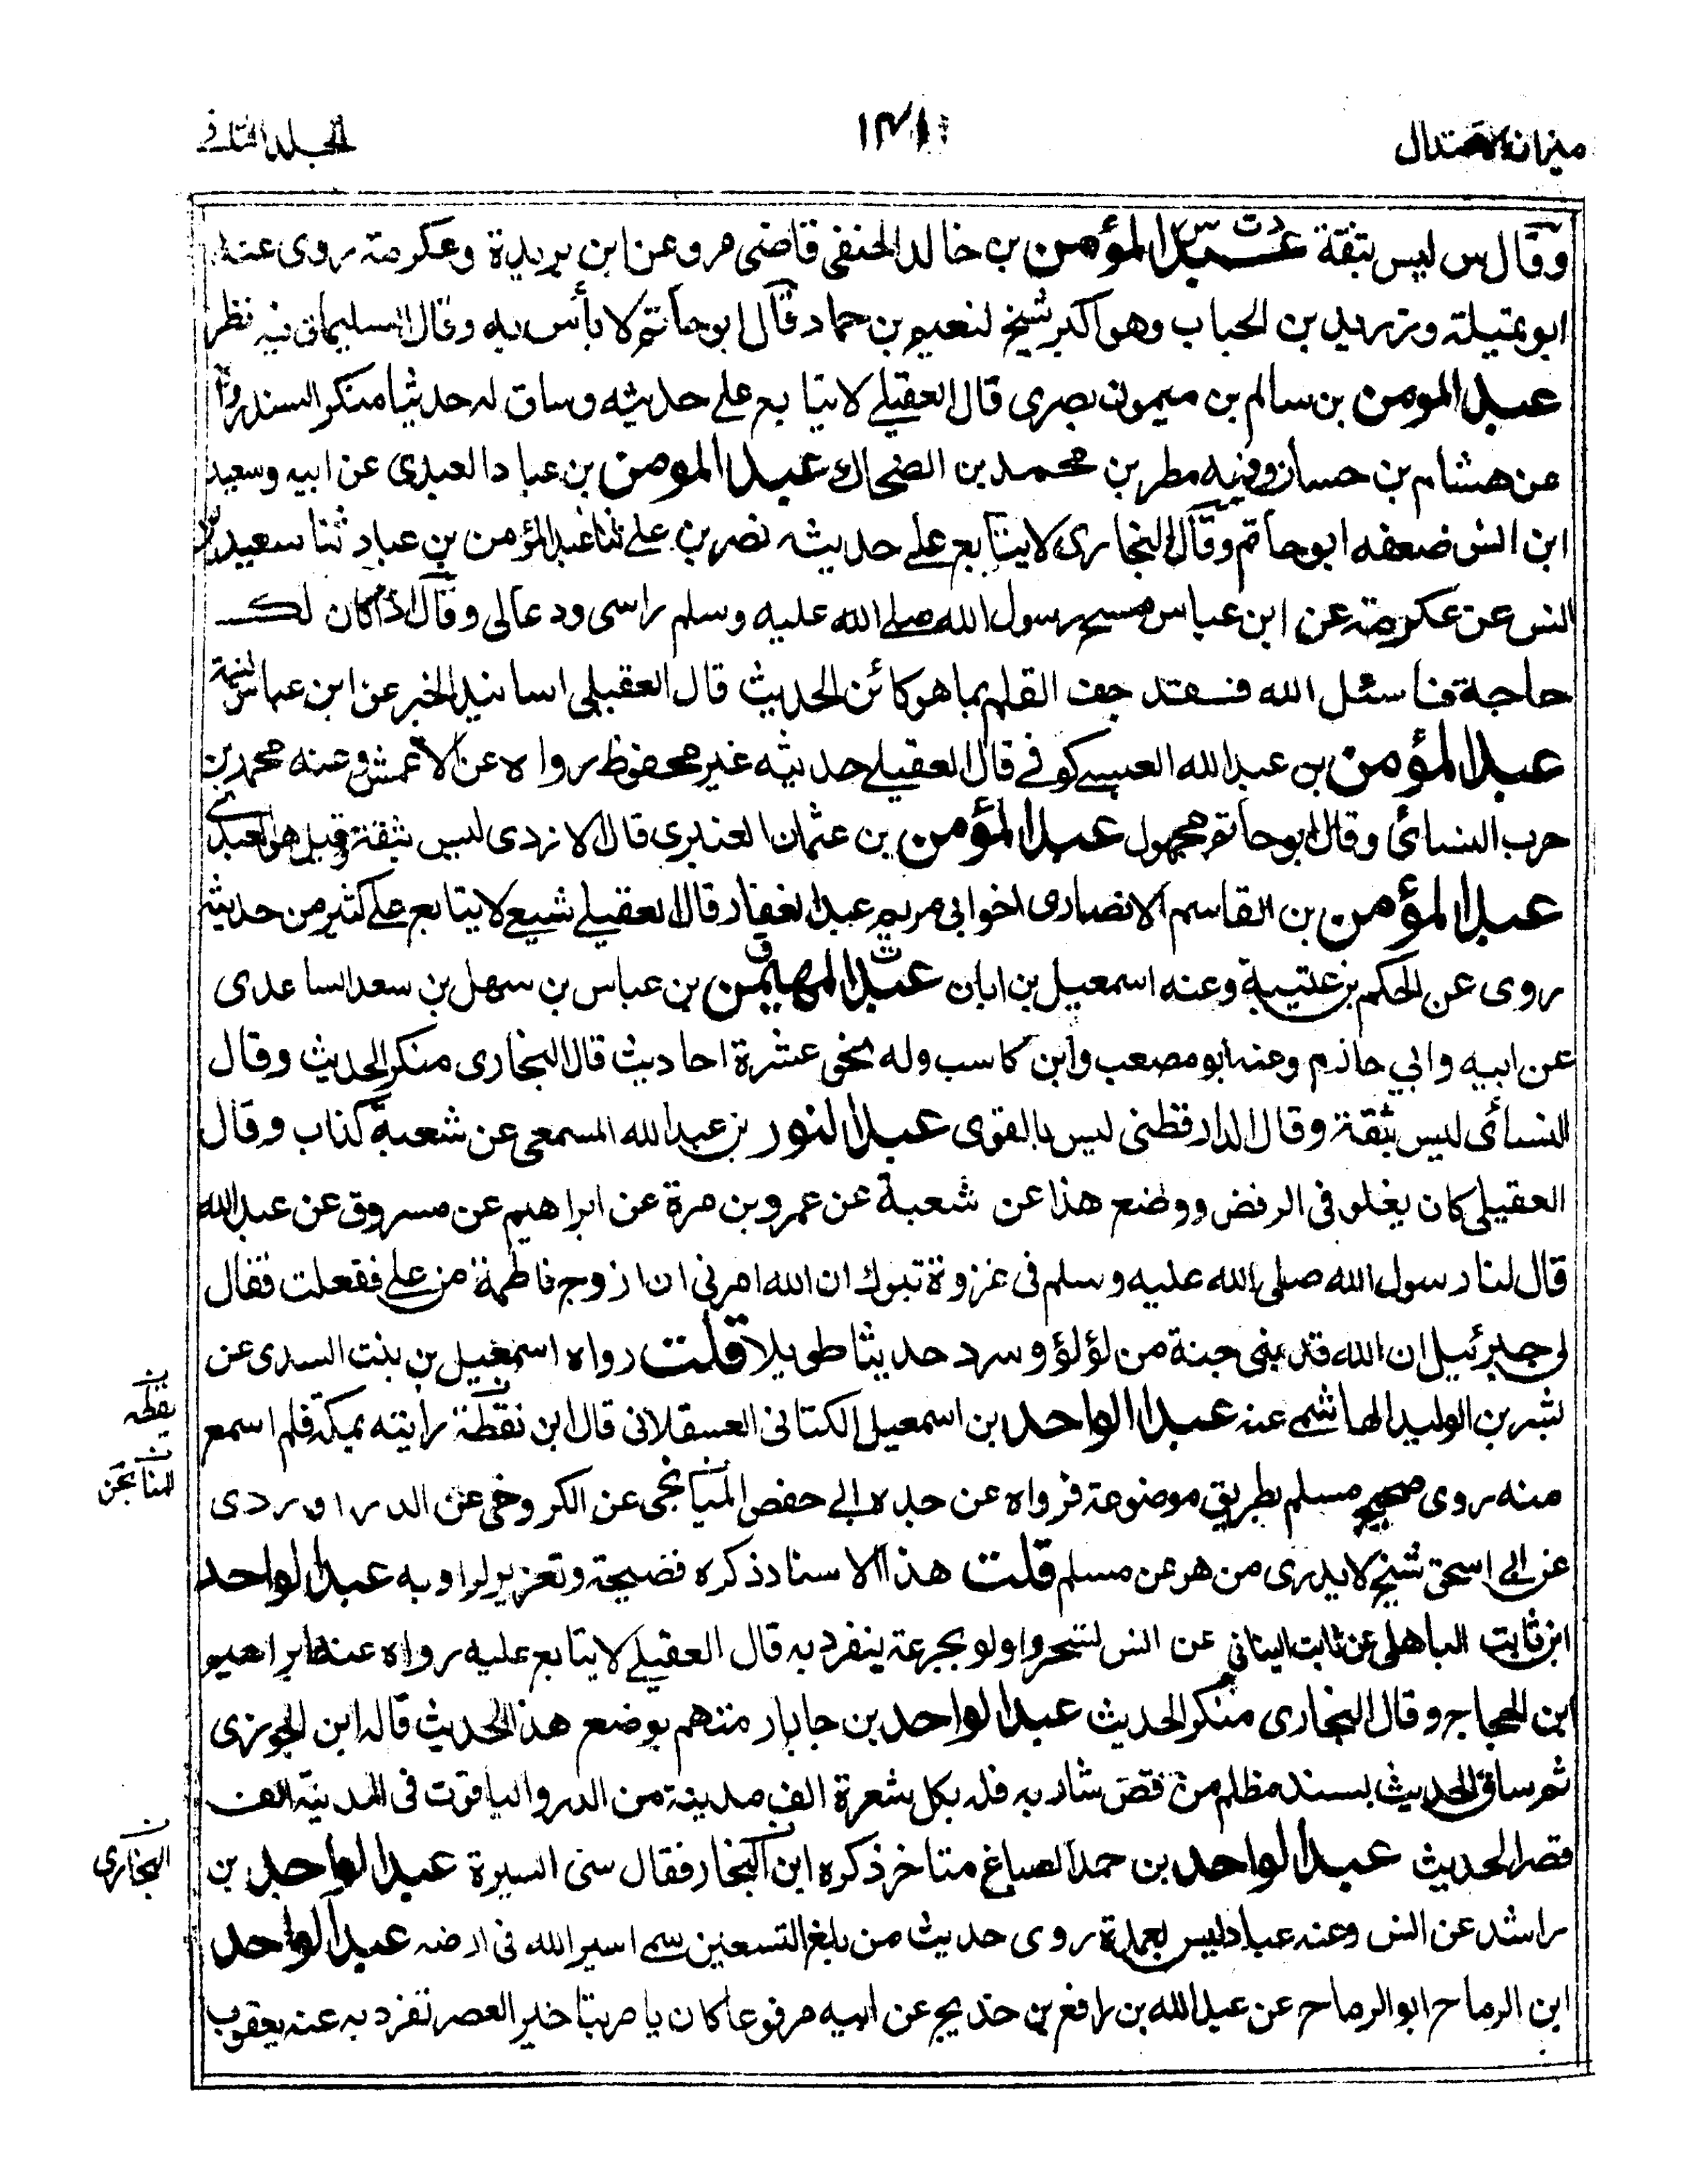 ميزان الاعتدال
المجلد الثاني
وقال س ليس بثقة عبد المؤمن بن خالد الحنفي قاضي مرو عن ابن بريدة وعكرمة روى عنه
ابو تميلة وزيد بن الحباب وهو اكبر شيخ لنعيم بن حماد قال ابو حاتم لا بأس به وقال السليماني فيه نظر
عبد المومن بن سالم بن ميمون بصرى قال العقيلے لا يتابع علے حديثه وساق له حديثا منكر السند رواه
عن هشام بن حسان وفيه مطر بن محمد بن الضحاك عبد المومن بن عباد العبدى عن ابيه وسعيد
ابن انس ضعفه ابو حاتم وقال البخارى لا يتابع علے حديثه نصر بن علے ثنا عبد المؤمن بن عباد ثنا سعيد بن
انس عن عكرمة عن ابن عباس مسح رسول الله صلے الله عليه وسلم راسى ودعا لى وقال اذا كان لك
حاجة فاسئل الله فقد جف القلم بما هو كائن الحديث قال العقيلى اسانيد الخبر عن ابن عباس لينة
عبد المؤمن بن عبد الله العبسے كوفے قال العقيلے حديثه غير محفوظ رواه عن الاعمش وعنه محمد بن
حرب النسائى وقال ابو حاتم مجهول عبد المؤمن بن عثمان العنبرى قال الازدى ليس بثقة وقيل هو العبدى
عبد المؤمن بن القاسم الانصارى اخو ابى مريم عبد الغفار قال العقيلے شيعے لا يتابع علے كثير من حديثه
روى عن الحكم بن عتيبة وعنه اسمعيل بن ابان عبد المهيمن بن عباس بن سهل بن سعد الساعدى
عن ابيه وابي حازم وعنه ابو مصعب وابن كاسب وله نحو عشرة احاديث قال البخارى منكر الحديث وقال
النسائى ليس بثقة وقال الدارقطنى ليس بالقوى عبد النور بن عبد الله المسمعى عن شعبة كذاب وقال
العقيلى كان يغلو فى الرفض ووضع هذا عن شعبة عن عمرو بن مرة عن ابراهيم عن مسروق عن عبد الله
قال لنا رسول الله صلى الله عليه وسلم فى غزوة تبوك ان الله امرني ان ازوج فاطمة من علے ففعلت فقال
لى جبرئيل ان الله قد بنى جنة من لؤلؤ وسرد حديثا طويلا قلت رواه اسمعيل بن بنت السدى عن
بشر بن الوليد الهاشمے عنه عبد الواحد بن اسمعيل الكتانى العسقلانى قال ابن نقطة رايته بمكة فلم اسمع
منه روى صحيح مسلم بطريق موضوعة فرواه عن جده ابے حفص الميانجى عن الكروخى عن الدراوردى
عن ابے اسحق شيخ لا يدرى من هو عن مسلم قلت هذا الاسناد ذكره فضيحة وتعزير لراويه عبد الواحد
ابن ثابت الباهلى عن ثابت البنانى عن انس تسحروا ولو بجرعة ينفرد به قال العقيلے لا يتابع عليه رواه عنه ابراهيم
ابن الحجاج وقال البخارى منكر الحديث عبد الواحد بن جابار متهم بوضع هذا الحديث قاله ابن الجوزى
ثم ساق الحديث بسند مظلم من قص شاربه فله بكل شعرة الف مدينة من الدر والياقوت فى المدينة الف
قصر الحديث عبد الواحد بن حمد الصباغ متاخر ذكره ابن النجار فقال سنى السيرة عبد الواحد بن
راشد عن انس وعنه عباد ليس بعمدة روى حديث من بلغ التسعين سمے اسير الله فى ارضه عبد الواحد
ابن الرماح ابو الرماح عن عبد الله بن رافع بن خديج عن ابيه مرفوعا كان يامر بتاخير العصر تفرد به عنه يعقوب
ن
يقظة
ن
ن
البخاري